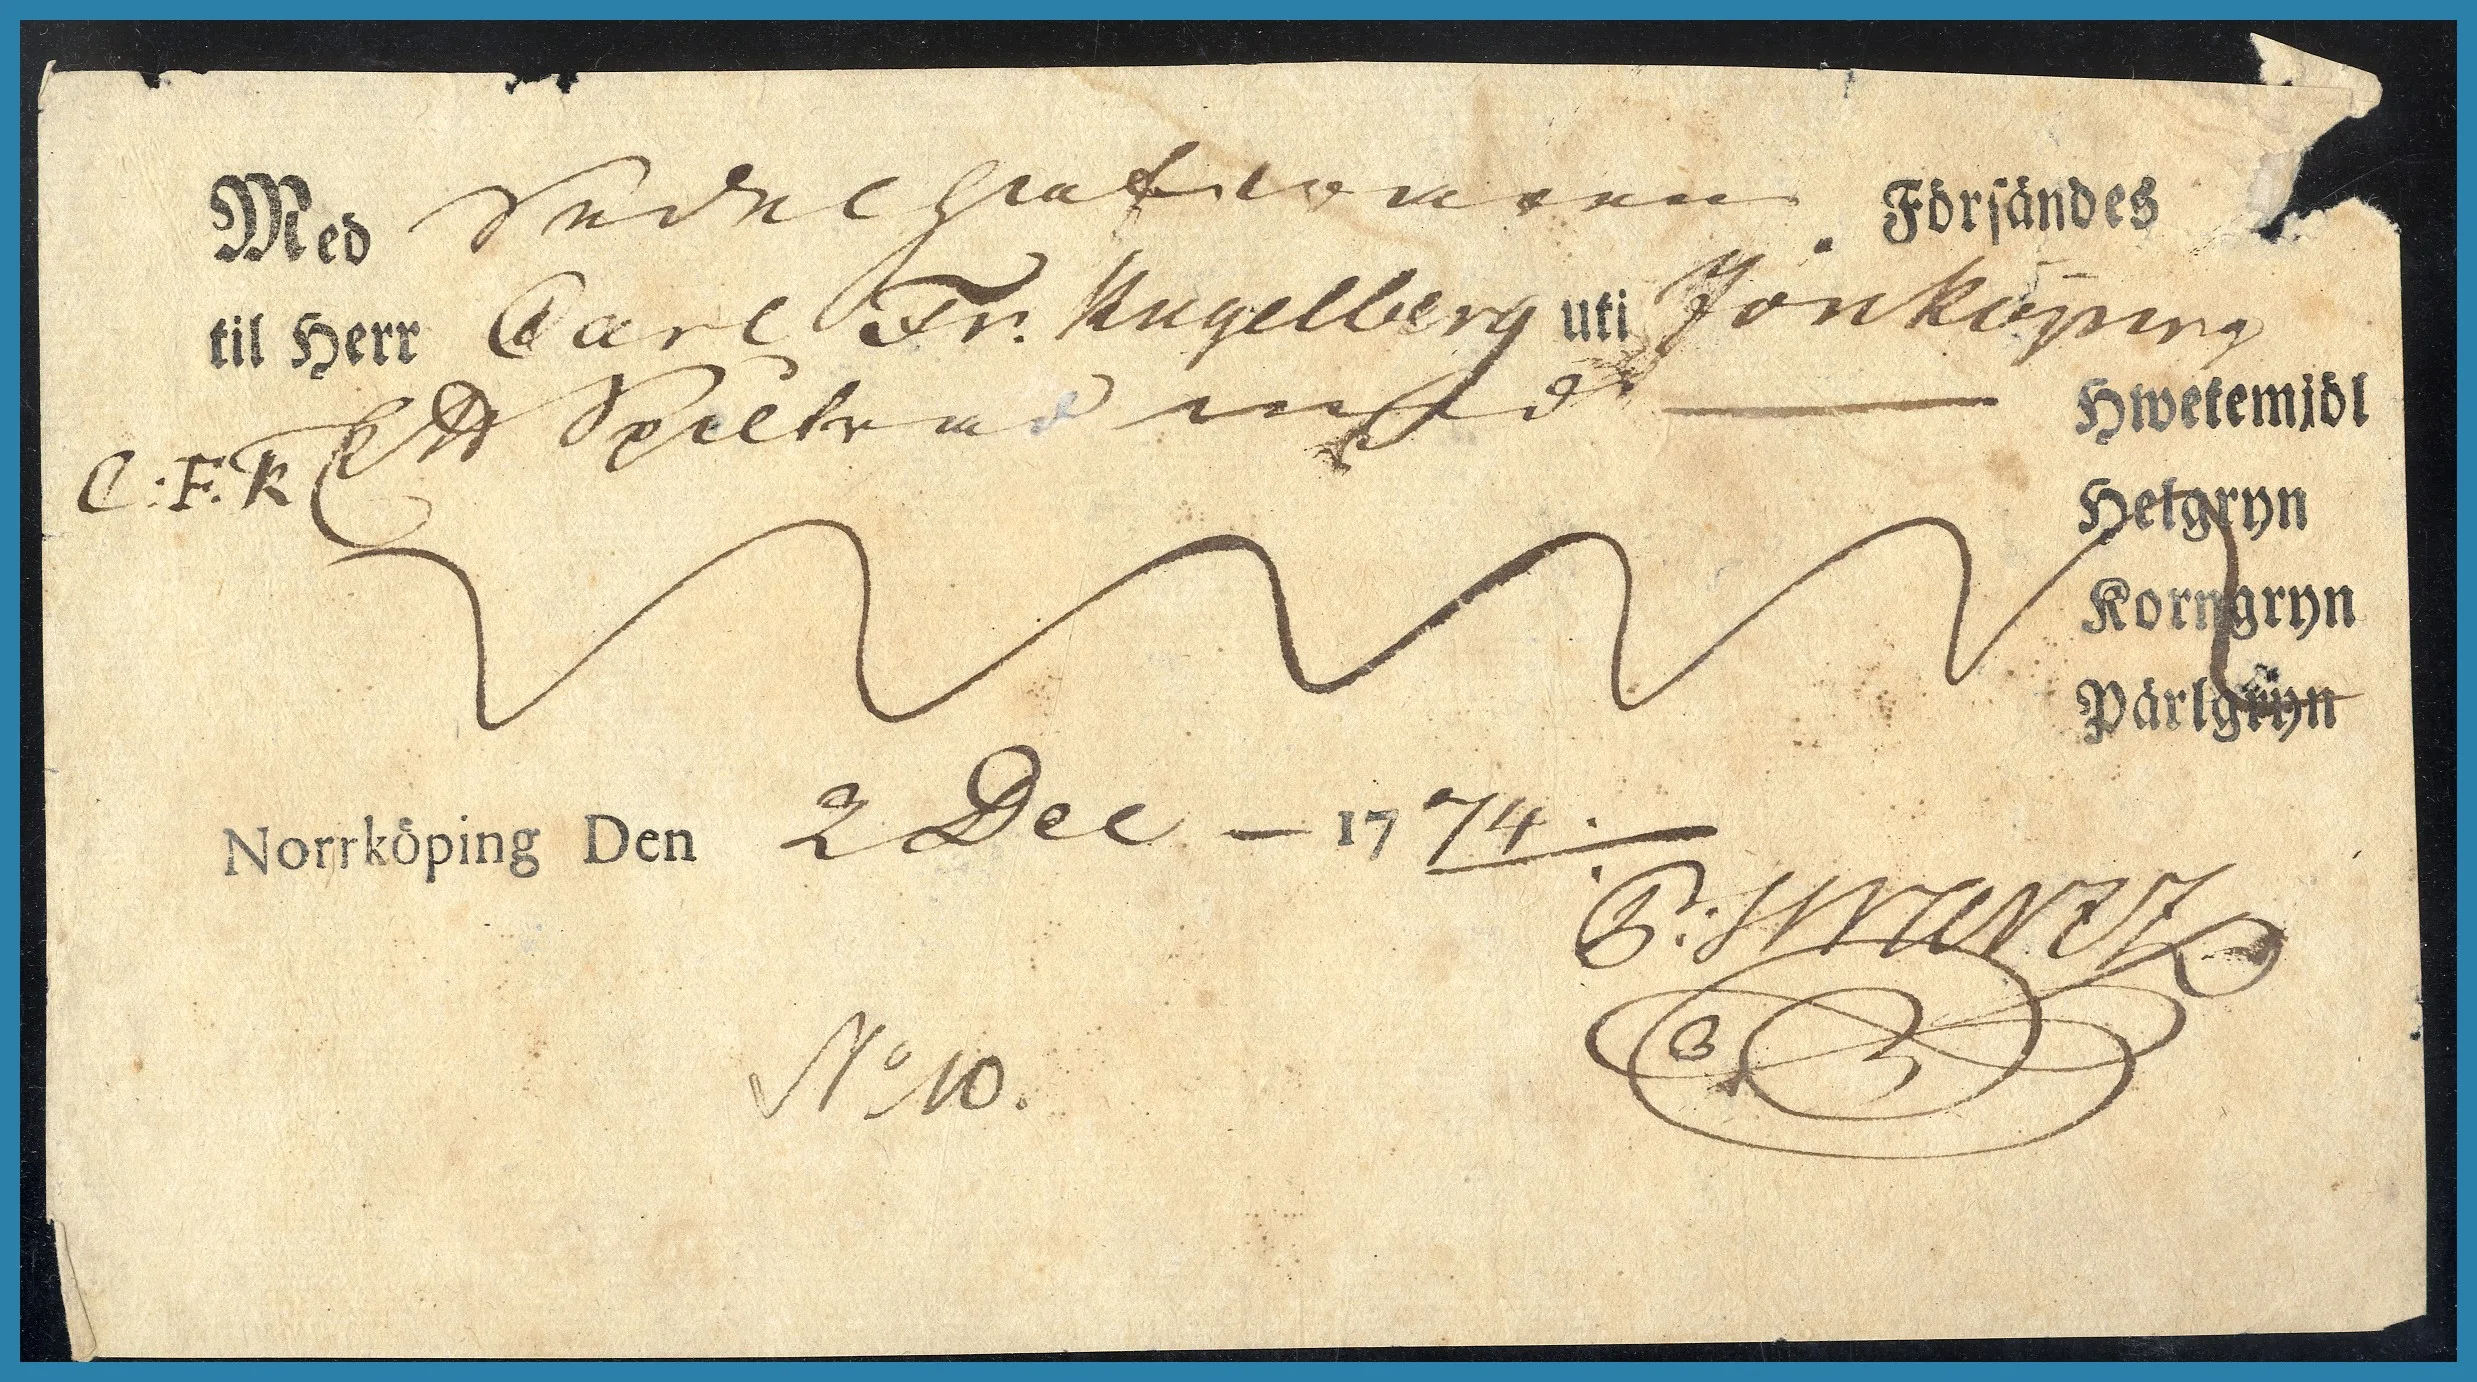 Med Försändes
til Herr Carl Fr. Kugelberg uti Jönköping
Ett med — Hwetemjöl
C:F.K
Helgryn
Korngryn
Pärlgryn
Norrköping Den 2 Dec — 1774.
P: Swartz
No 10.